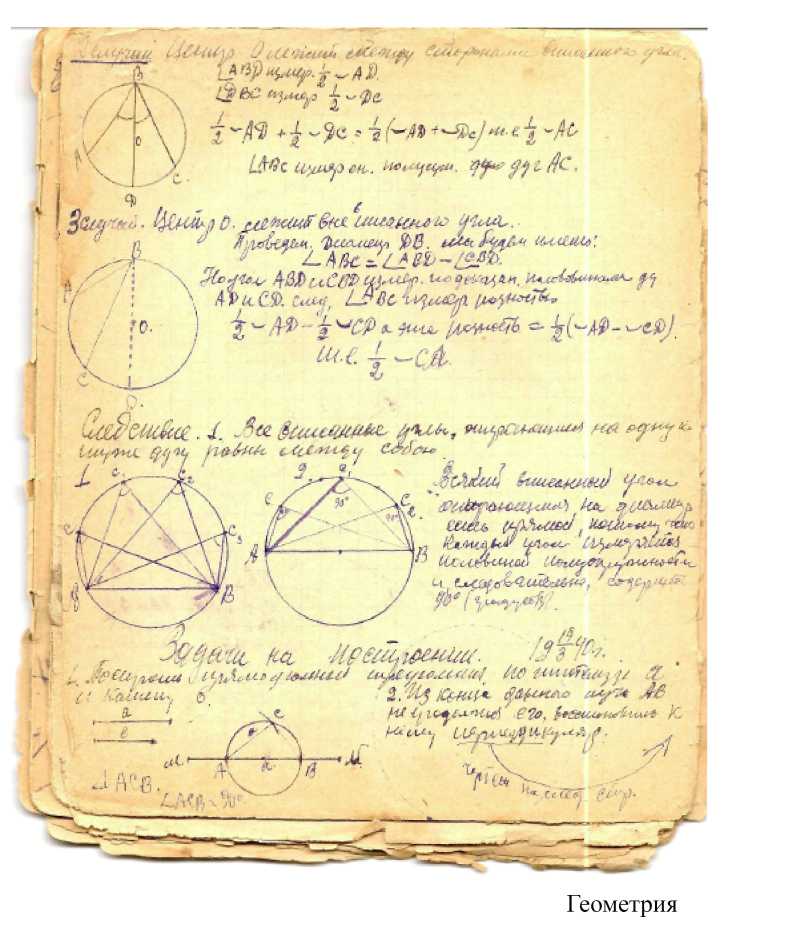 2 случай Центр О лежит между сторонами вписанного угла.
∠ABD измер. ½ ◡ AD.
∠DBC измер ½ ◡ DC
½ ◡ AD + ½ ◡ DC = ½ (◡ AD + ◡ DC) т.е ½ ◡ AC
∠ABC измер он. полусум. дуг AC.
B
O
A
C
D
3 случай. Центр О. лежит вне вписанного угла.
Проведем, диаметр DB. мы будем иметь:
∠ABC = ∠ABD - ∠CBD.
Но угол ABD и CBD измер. по доказан. половинами ду
AD и CD. след, ∠ABC измер разностью
½ ◡ AD - ½ ◡ CD а эта разность = ½ (◡ AD - ◡ CD)
т.е. ½ ◡ CA.
B
A
O.
C
D.
Следствие. 1. Все вписанные углы, опирающиеся на одну и
ту же дугу равны между собою.
1
C₂
C₃
B
2.
C₁
90°
C
C₂
90°
A
B
Всякий вписанный угол
опирающийся на диаметр
есть прямой, потому что
каждый угол измеряется
половиной полуокружности
и следовательно, содержит
90° (градусов).
Задачи на построении.
19 19/3 40г.
1. Построении прямоугольный треугольник, по гипотенузе a
и катету в.
a
в
C
M
A
B
N
∆ ACB.
∠ACB = 90°
2. Из конца данного луча AB
не продолжая его, восстановить к
нему перпендикуляр.
Чертеж на след стр.
Геометрия